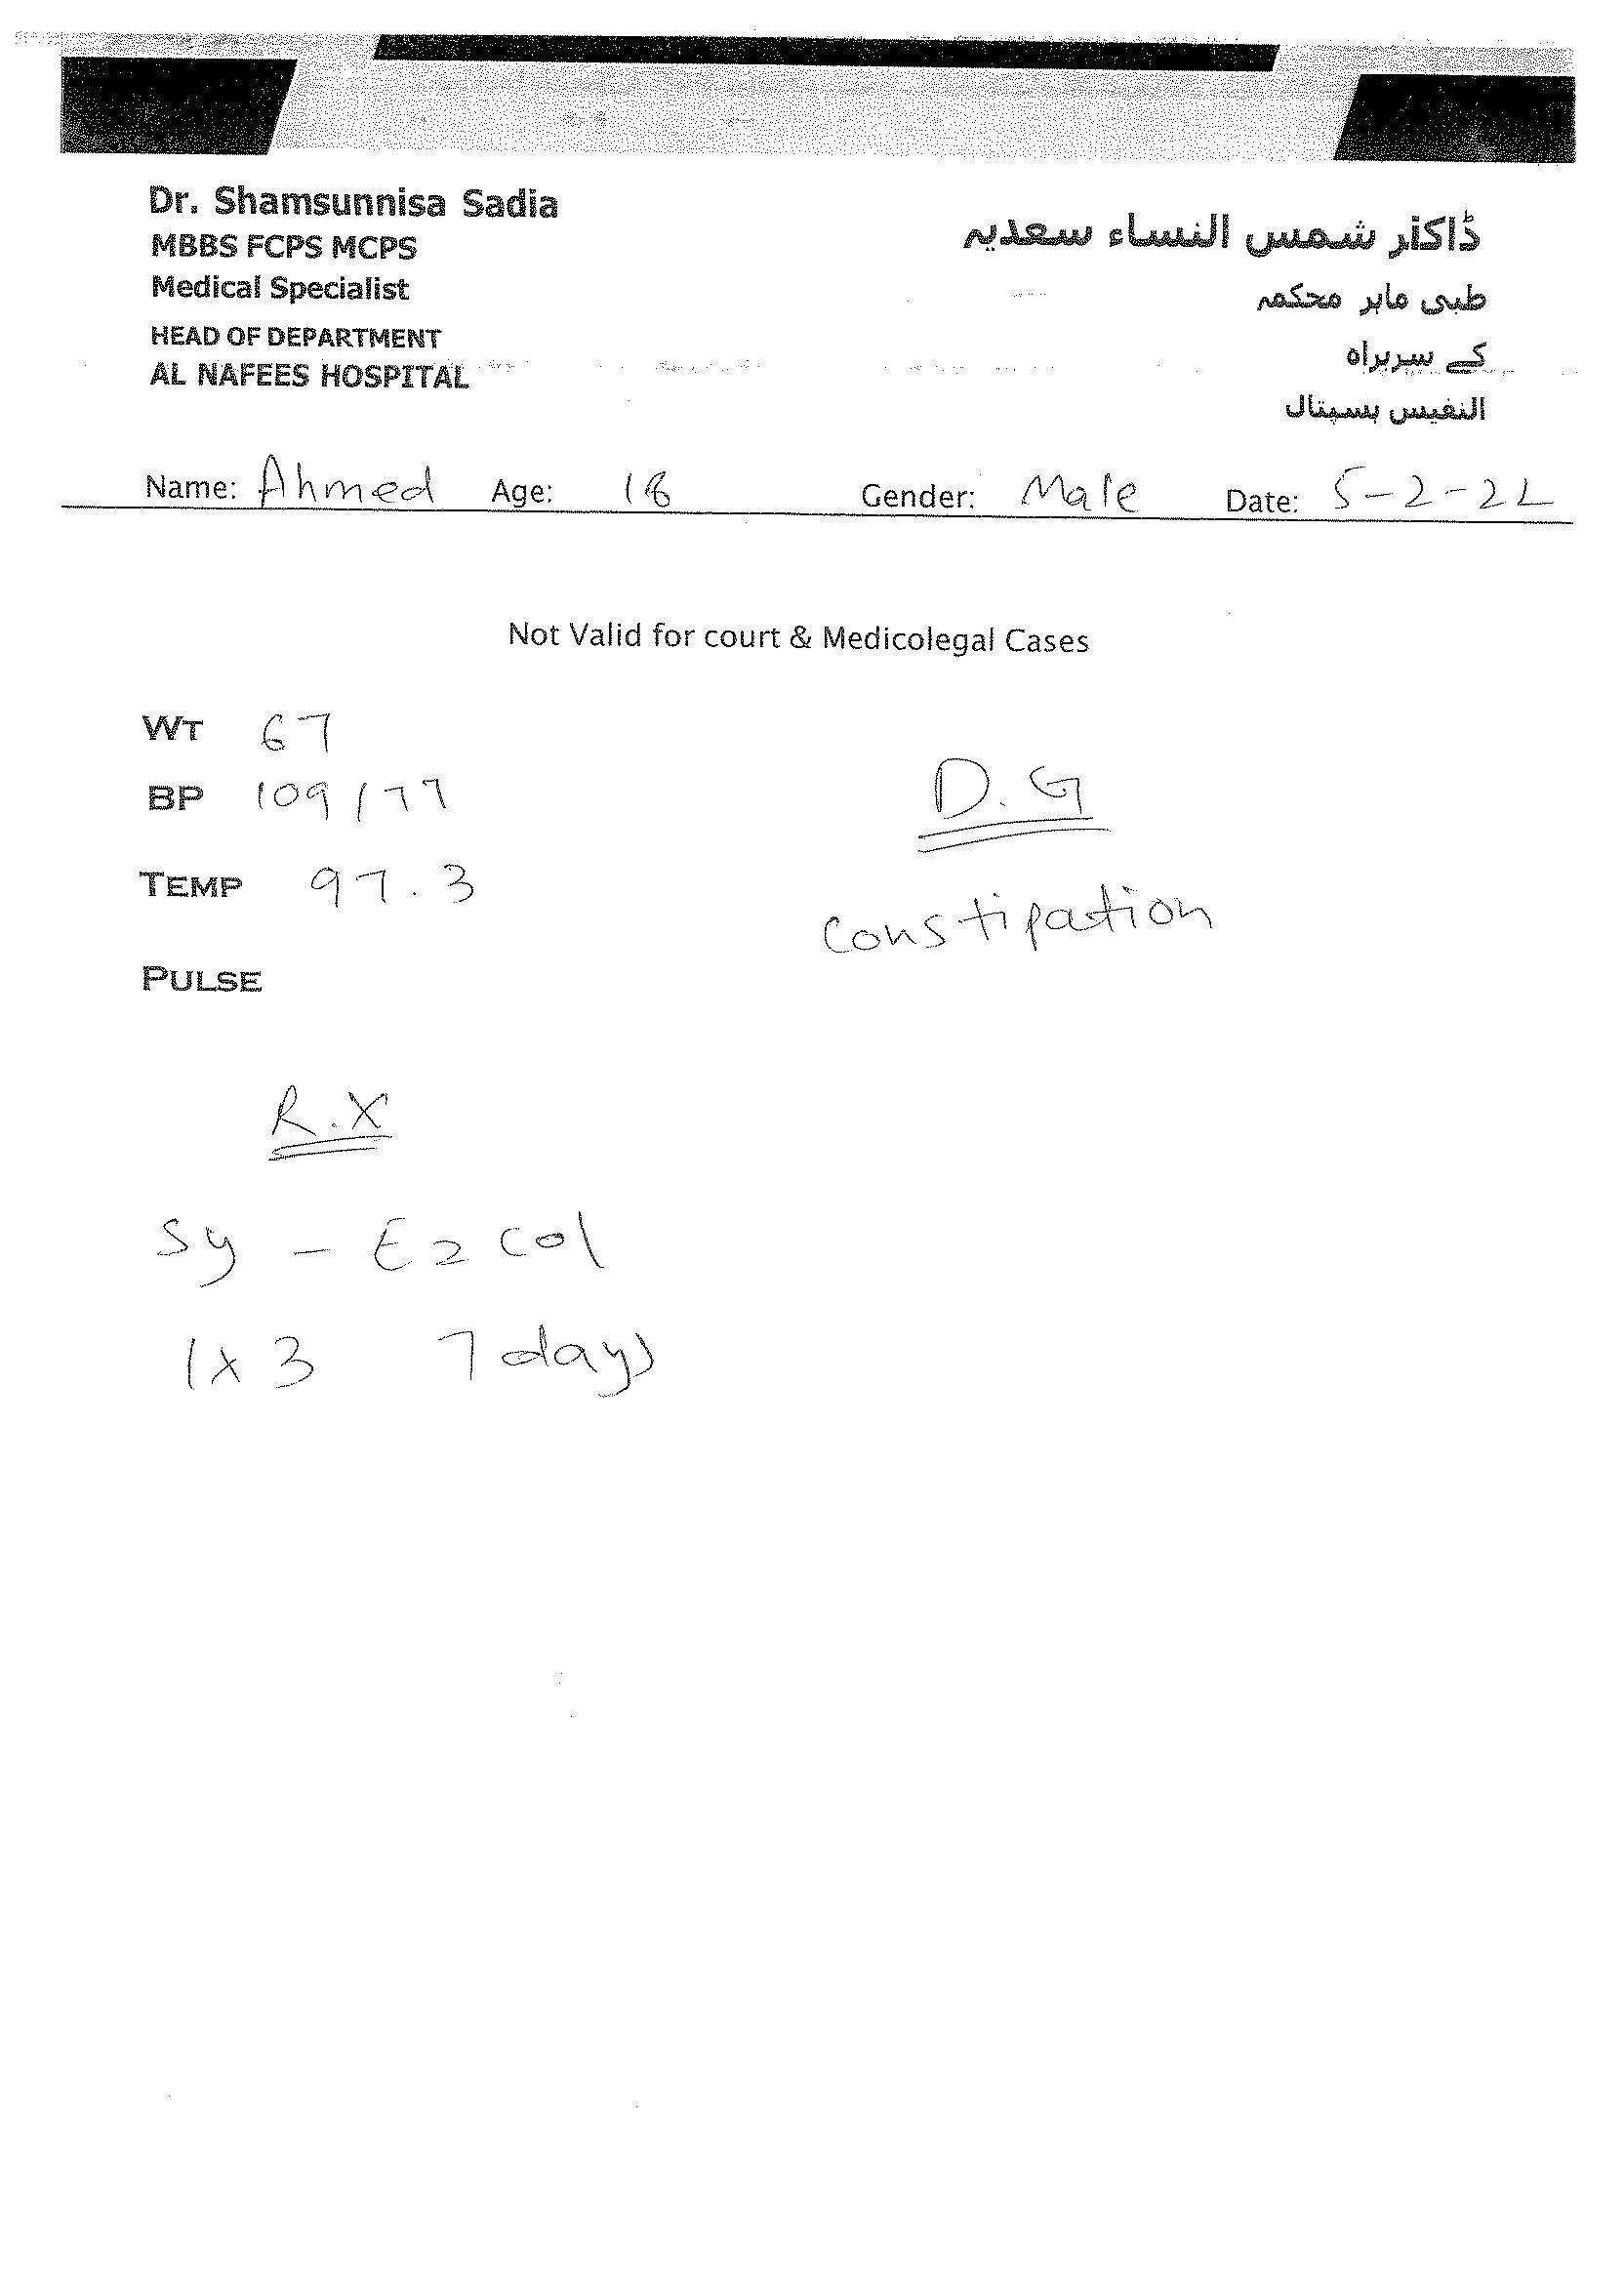 Dr. Shamsunnisa Sadia
MBBS FCPS MCPS
Medical Specialist
HEAD OF DEPARTMENT
AL NAFEES HOSPITAL
ڈاکٹر شمس النساء سعدیہ
طبی ماہر محکمہ
کے سربراہ
النفیس ہسپتال
Name: Ahmed Age: 18 Gender: Male Date: 5-2-22
Not Valid for court & Medicolegal Cases
WT 67
BP 109/77
TEMP 97.3
PULSE
D.G
Constipation
R.X
Sy - Ezcol
1x3 7 days